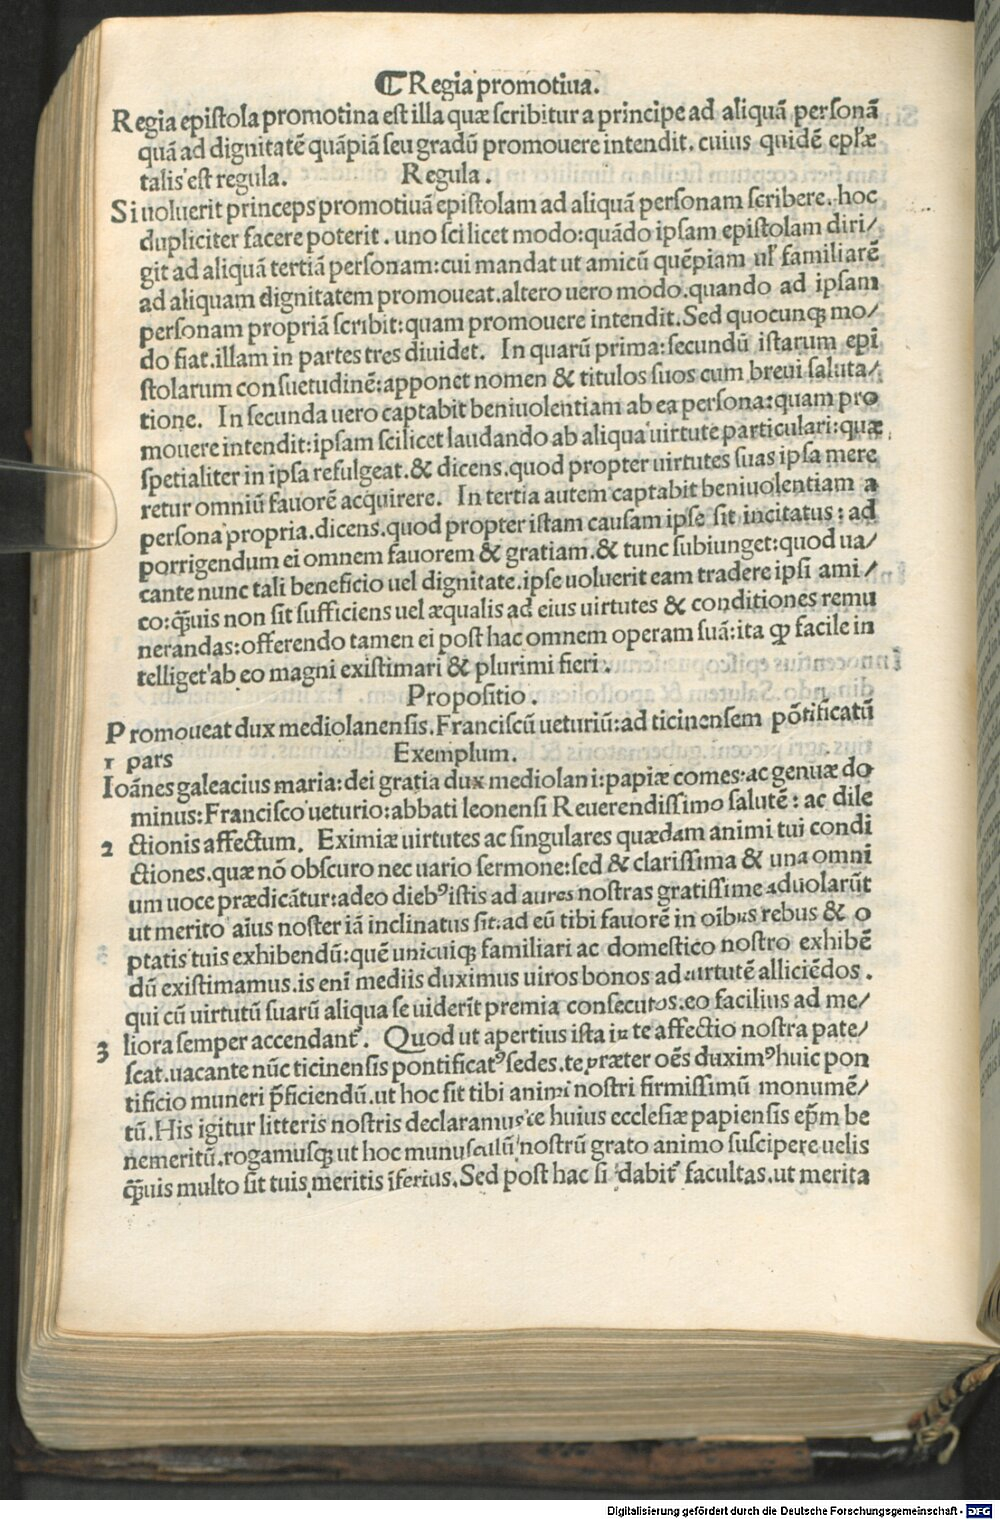 ⁋ Regia promotiua.
Regia epistola promotina est illa quæ scribitur a principe ad aliquã personã
quã ad dignitatẽ quãpiã seu gradũ promouere intendit. cuius quidẽ epľæ
talis est regula. Regula.
Si uoluerit princeps promotiuã epistolam ad aliquã personam scribere. hoc
dupliciter facere poterit. uno scilicet modo: quãdo ipsam epistolam diri/
git ad aliquã tertiã personam: cui mandat ut amicũ quẽpiam uľ familiarẽ
ad aliquam dignitatem promoueat. altero uero modo. quando ad ipsam
personam propriã scribit: quam promouere intendit. Sed quocunqꝫ mo/
do fiat. illam in partes tres diuidet. In quarũ prima: secundũ istarum epi
stolarum consuetudinẽ: apponet nomen & titulos suos cum breui saluta/
tione. In secunda uero captabit beniuolentiam ab ea persona: quam pro
mouere intendit: ipsam scilicet laudando ab aliqua uirtute particulari: quæ
spetialiter in ipsa refulgeat. & dicens. quod propter uirtutes suas ipsa mere
retur omniũ fauorẽ acquirere. In tertia autem captabit beniuolentiam a
persona propria. dicens. quod propter istam causam ipse sit incitatus: ad
porrigendum ei omnem fauorem & gratiam. & tunc subiunget: quod ua/
cante nunc tali beneficio uel dignitate. ipse uoluerit eam tradere ipsi ami/
co: q̃uis non sit sufficiens uel æqualis ad eius uirtutes & conditiones remu
nerandas: offerendo tamen ei post hac omnem operam suã: ita ꝙ facile in
telliget ab eo magni existimari & plurimi fieri.
Propositio.
Promoueat dux mediolanensis. Franciscũ ueturiũ: ad ticinensem põtificatũ
1 pars Exemplum.
Ioãnes galeacius maria: dei gratia dux mediolani: papiæ comes: ac genuæ do
minus: Francisco ueturio: abbati leonensi Reuerendissimo salutẽ: ac dile
2 ctionis affectum. Eximiæ uirtutes ac singulares quædam animi tui condi
ctiones. quæ nõ obscuro nec uario sermone: sed & clarissima & una omni
um uoce prædicãtur: adeo diebꝰ istis ad aures nostras gratissime aduolarũt
ut merito aĩus noster iã inclinatus sit: ad eũ tibi fauorẽ in oĩbus rebus & o
ptatis tuis exhibendũ: quẽ unicuiqꝫ familiari ac domestico nostro exhibẽ
dũ existimamus. is enĩ mediis duximus uiros bonos ad uirtutẽ alliciẽdos.
qui cũ uirtutũ suarũ aliqua se uiderĩt premia consecutos. eo facilius ad me/
3 liora semper accendanť. Quod ut apertius ista in te affectio nostra pate/
scat. uacante nũc ticinensis pontificatꝰ sedes. te præter oẽs duximꝰ huic pon
tificio muneri p̃ficiendũ. ut hoc sit tibi animi nostri firmissimũ monumẽ/
tũ. His igitur litteris nostris declaramus te huius ecclesiæ papiensis ep̃m be
nemeritũ. rogamusqꝫ ut hoc munusculũ nostrũ grato animo suscipere uelis
q̃uis multo sit tuis meritis ĩferius. Sed post hac si dabiť facultas. ut merita
Digitalisierung gefördert durch die Deutsche Forschungsgemeinschaft - DFG